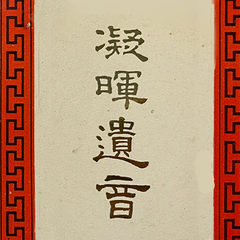 凝暉遺音